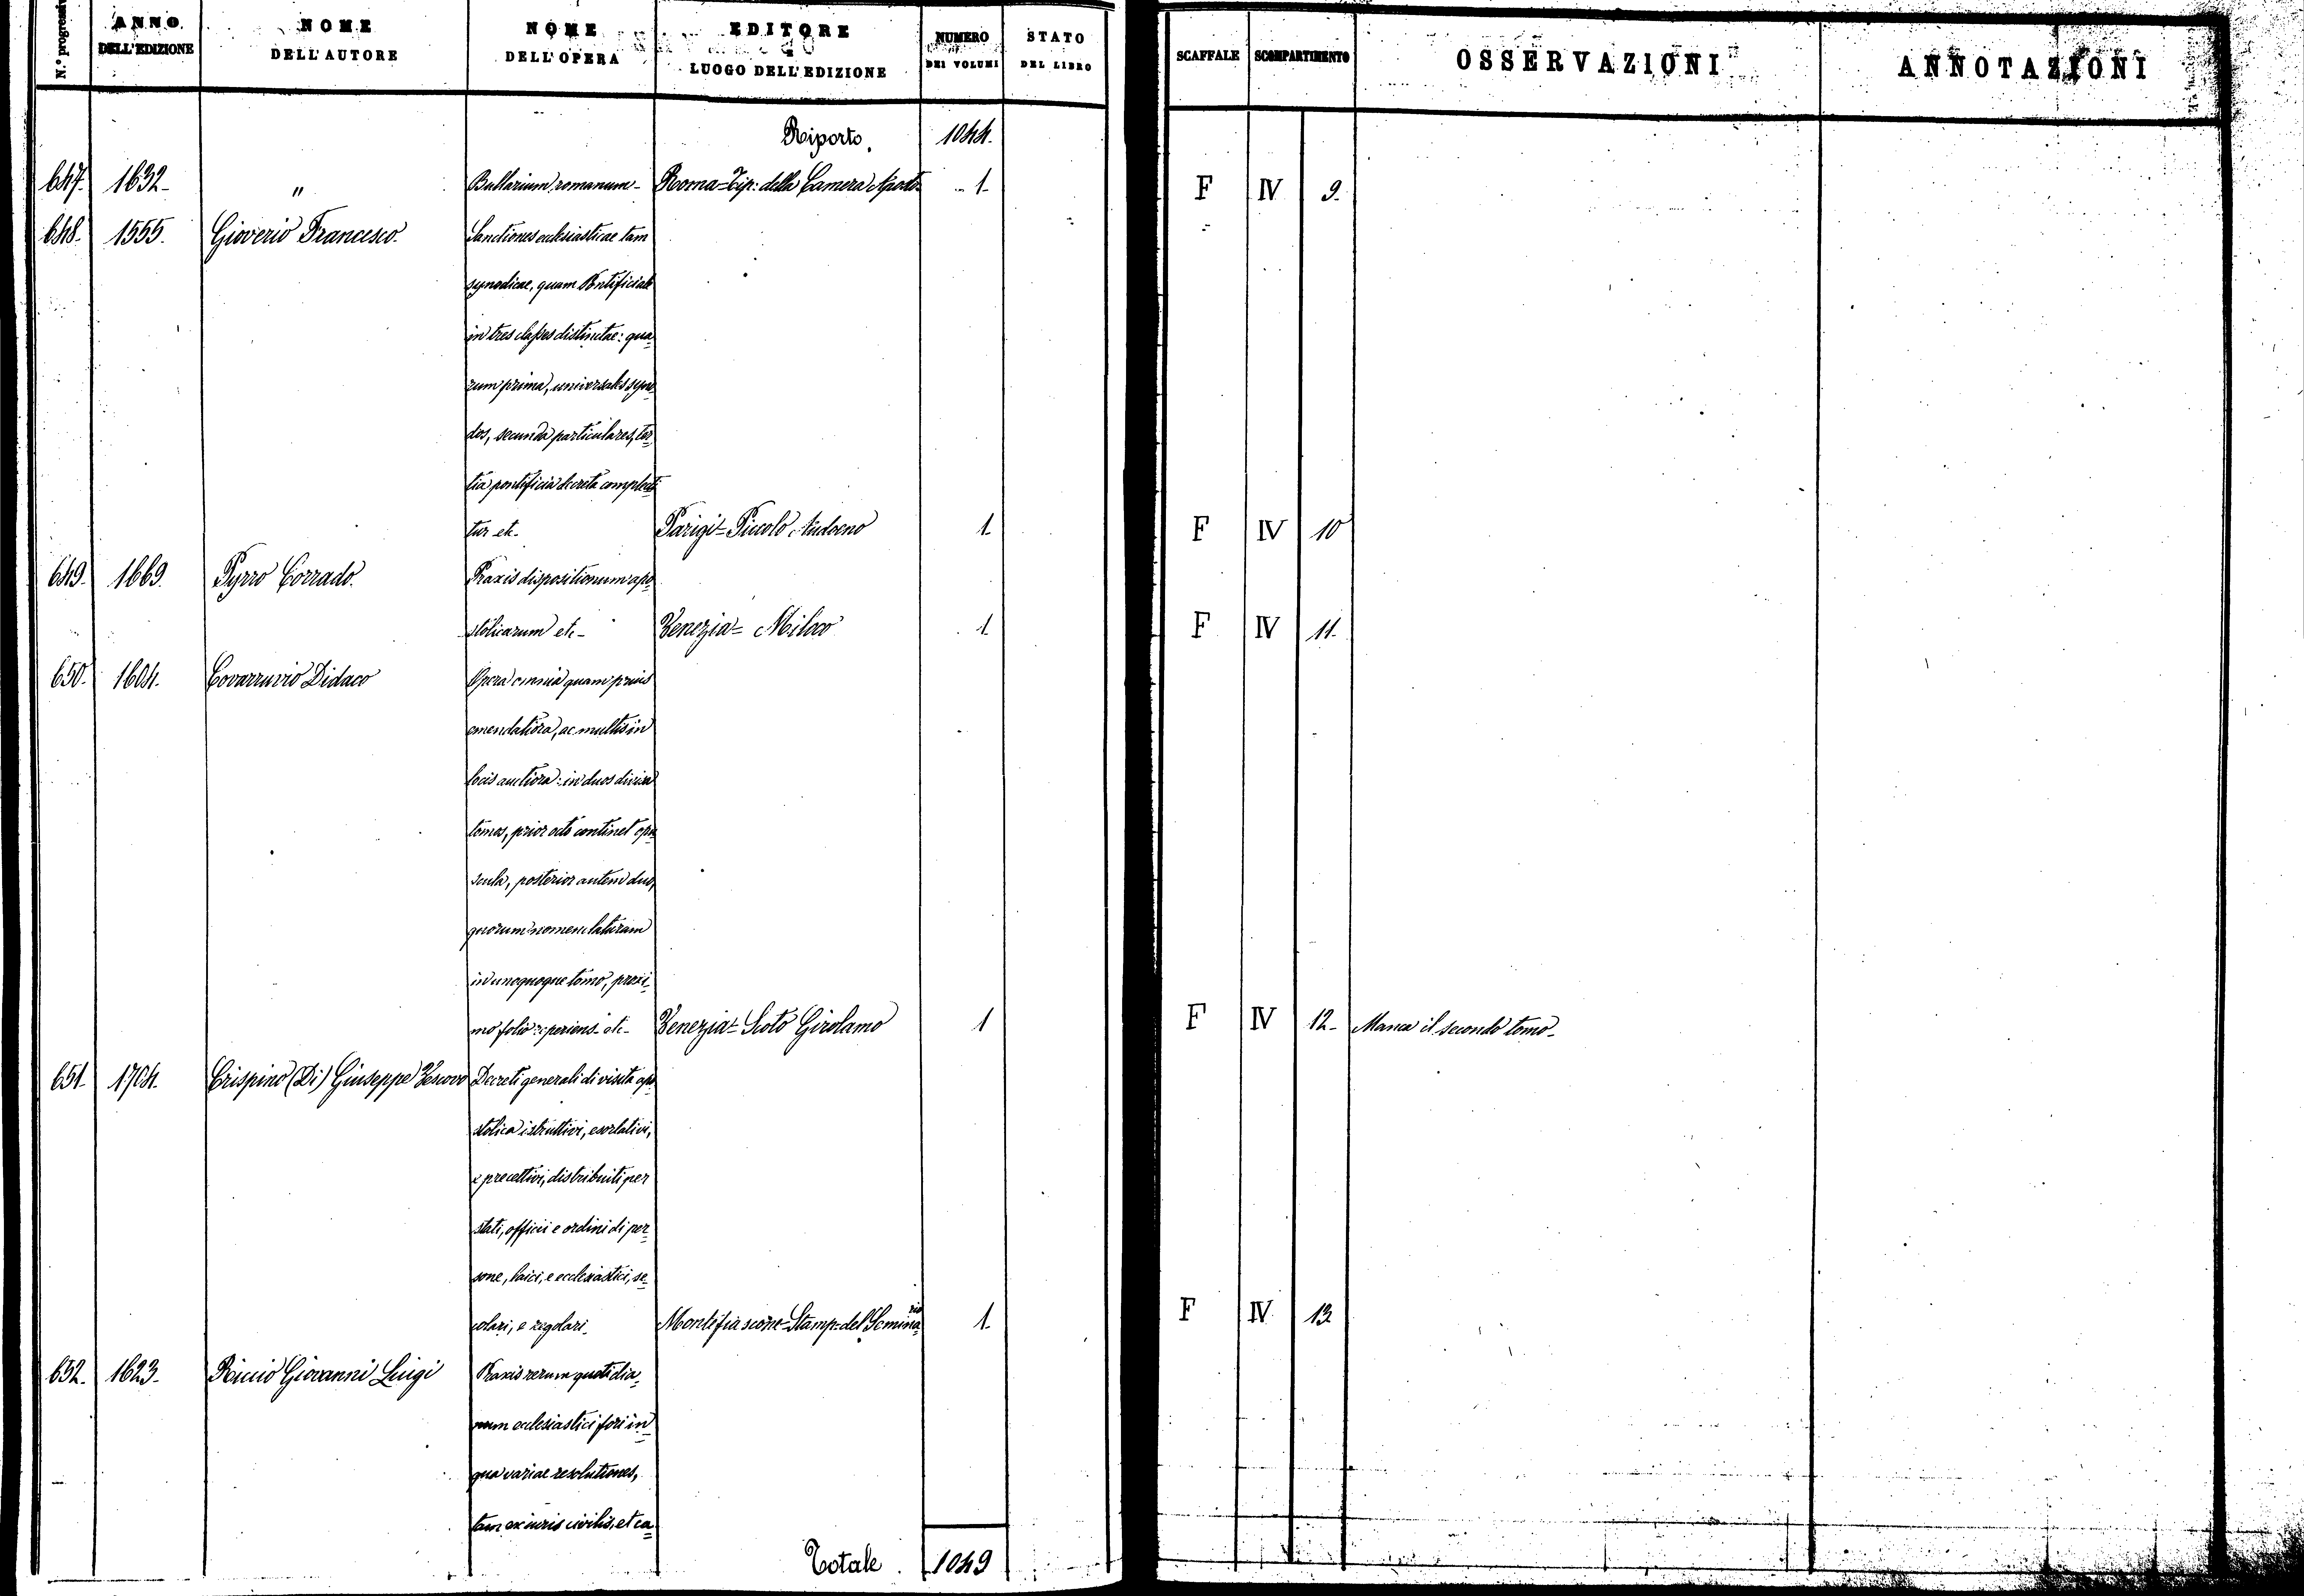 N.° progressivo | ANNO DELL'EDIZIONE | NOME DELL'AUTORE | NOME DELL'OPERA | EDITORE E LUOGO DELL'EDIZIONE | NUMERO DEI VOLUMI | STATO DEL LIBRO | SCAFFALE | SCOMPARTIMENTO | OSSERVAZIONI | ANNOTAZIONI
Riporto. 1044.
647. 1632. " Bullarium romanum - Roma = Tip: della Camera Apost. 1. F IV 9.
648. 1555. Gioverio Francesco. Sanctiones ecclesiasticae tam
synodicae, quam Pontificiae
in tres classes distinctae: qua
rum prima, universales syno
dos, secunda particulares, ter
tia pontificia decreta complecti
tur etc. Parigi = Piccolo Audoeno 1. F IV 10
649. 1669. Pyrro Corrado. Praxis dispositionum apo
stolicarum etc - Venezia = Miloco 1. F IV 11.
650. 1604. Covarruvio Didaco Opera omnia quam prius
emendatiora, ac multis in
locis auctiora: in duos divisa
tomos, prior octo continet opu
scula, posterior autem duo,
quorum nomenclaturam
in unoquoque tomo, proxi
mo folio reperiens etc - Venezia = Scoto Girolamo 1 F IV 12. Manca il secondo tomo.
651. 1704. Crispino (Di) Giuseppe Vescovo Decreti generali di visita apo
stolica istruttivi, esortativi,
e precettivi, distribuiti per
stati, officii e ordini di per
sone, laici, e ecclesiastici, se
colari, e regolari. Montefiascone = Stamp: del Seminario 1. F IV 13
652. 1623. Riccio Giovanni Luigi Praxis rerum quotidia
num ecclesiastici fori in
qua variae resolutiones,
tam ex iuris civilis, et ca
Totale. 1049